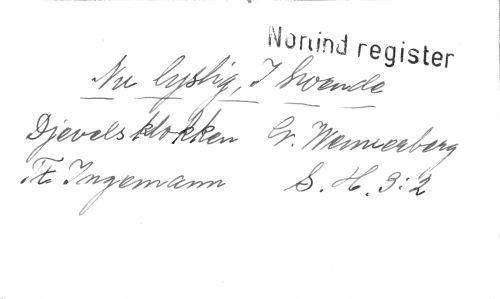 Norlind register
Nu lystig, I hvende
Djevelsklokken G. Wennerberg
F. Ingemann S. H. 3:2